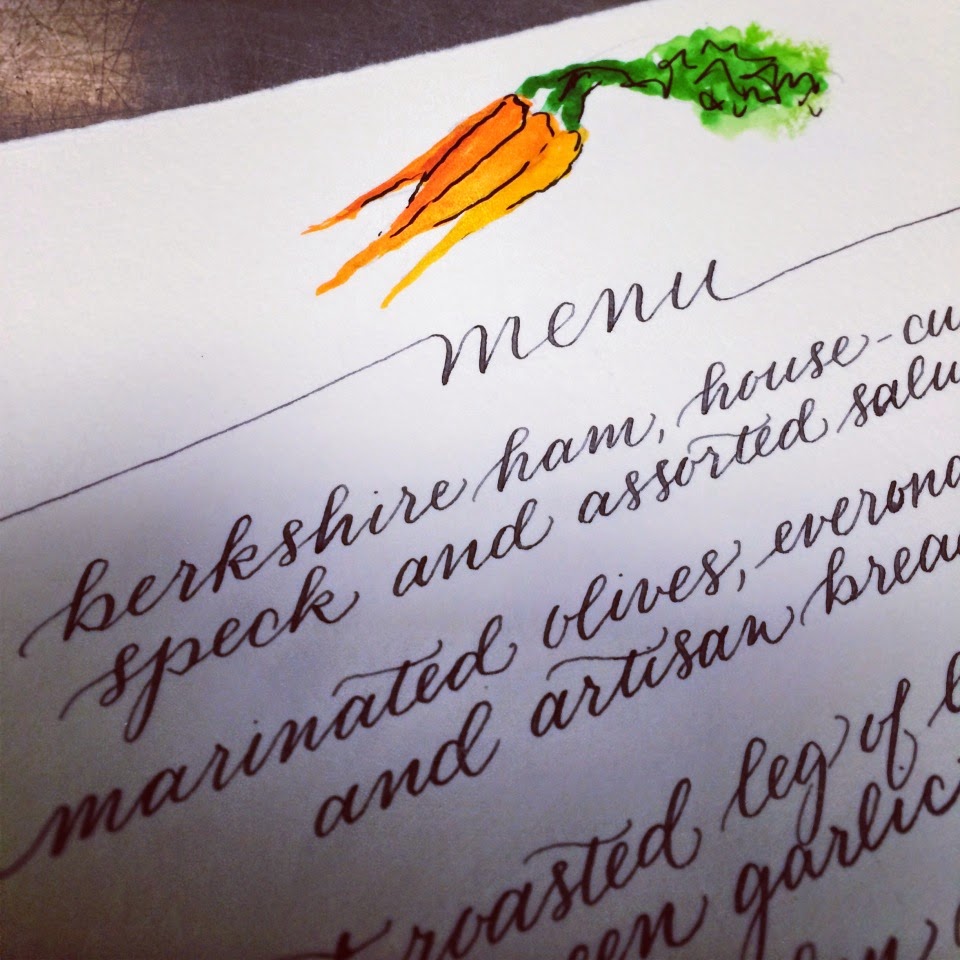 menu
berkshire ham, house-cu
speck and assorted salu
marinated olives, everona
and artisan brea
roasted leg of
garlic